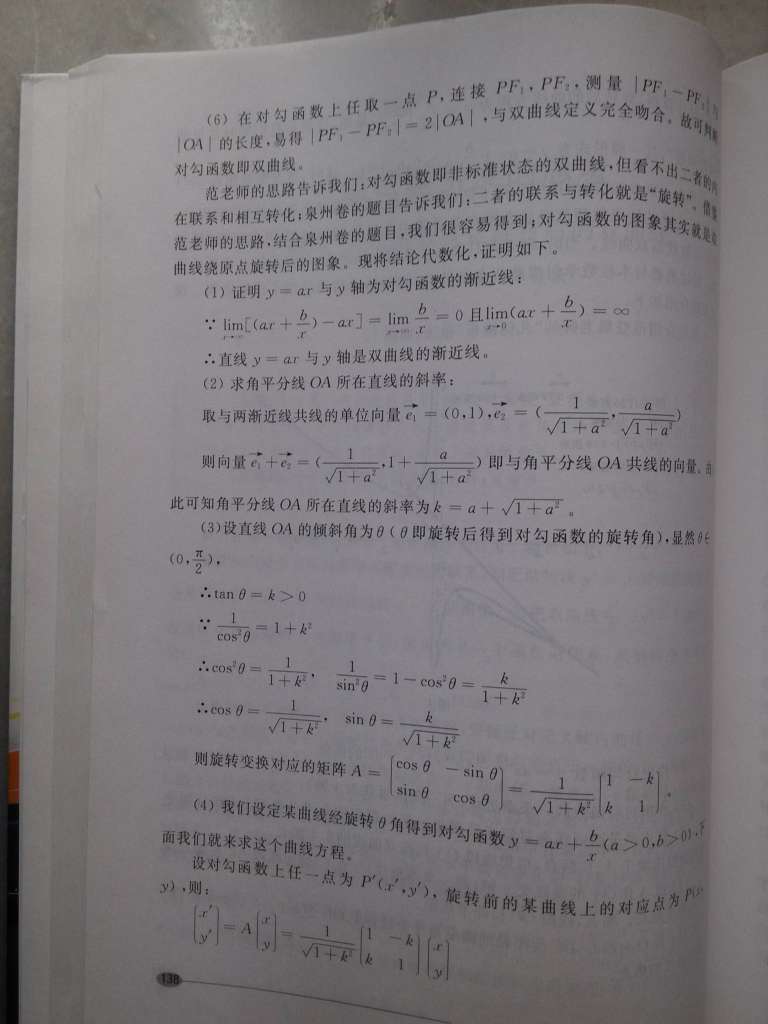 (6) 在对勾函数上任取一点 P, 连接 PF₁, PF₂, 测量 |PF₁ − PF₂|
|OA| 的长度, 易得 |PF₁ − PF₂| = 2|OA|, 与双曲线定义完全吻合。故可判断
对勾函数即双曲线。
范老师的思路告诉我们: 对勾函数即非标准状态的双曲线, 但看不出二者的内
在联系和相互转化; 泉州卷的题目告诉我们: 二者的联系与转化就是“旋转”。借鉴
范老师的思路, 结合泉州卷的题目, 我们很容易得到: 对勾函数的图象其实就是
曲线绕原点旋转后的图象。现将结论代数化, 证明如下。
(1) 证明 y = ax 与 y 轴为对勾函数的渐近线:
∵ lim_{x→∞}[(ax + b/x) − ax] = lim_{x→∞} b/x = 0 且 lim_{x→0}(ax + b/x) = ∞
∴直线 y = ax 与 y 轴是双曲线的渐近线。
(2) 求角平分线 OA 所在直线的斜率:
取与两渐近线共线的单位向量 e₁→ = (0,1), e₂→ = (1/√(1+a²), a/√(1+a²))
则向量 e₁→ + e₂→ = (1/√(1+a²), 1 + a/√(1+a²)) 即与角平分线 OA 共线的向量。由
此可知角平分线 OA 所在直线的斜率为 k = a + √(1+a²)。
(3)设直线 OA 的倾斜角为 θ ( θ 即旋转后得到对勾函数的旋转角), 显然 θ ∈
(0, π/2),
∴tan θ = k > 0
∵ 1/cos²θ = 1 + k²
∴cos²θ = 1/(1+k²), 1/sin²θ = 1 − cos²θ = k/(1+k²)
∴cos θ = 1/√(1+k²), sin θ = k/√(1+k²)
则旋转变换对应的矩阵 A = [cos θ −sin θ; sin θ cos θ] = 1/√(1+k²) [1 −k; k 1]。
(4) 我们设定某曲线经旋转 θ 角得到对勾函数 y = ax + b/x (a > 0, b > 0), 下
面我们就来求这个曲线方程。
设对勾函数上任一点为 P′(x′, y′), 旋转前的某曲线上的对应点为 P(x,
y), 则:
[x′; y′] = A[x; y] = 1/√(1+k²) [1 −k; k 1][x; y]
138